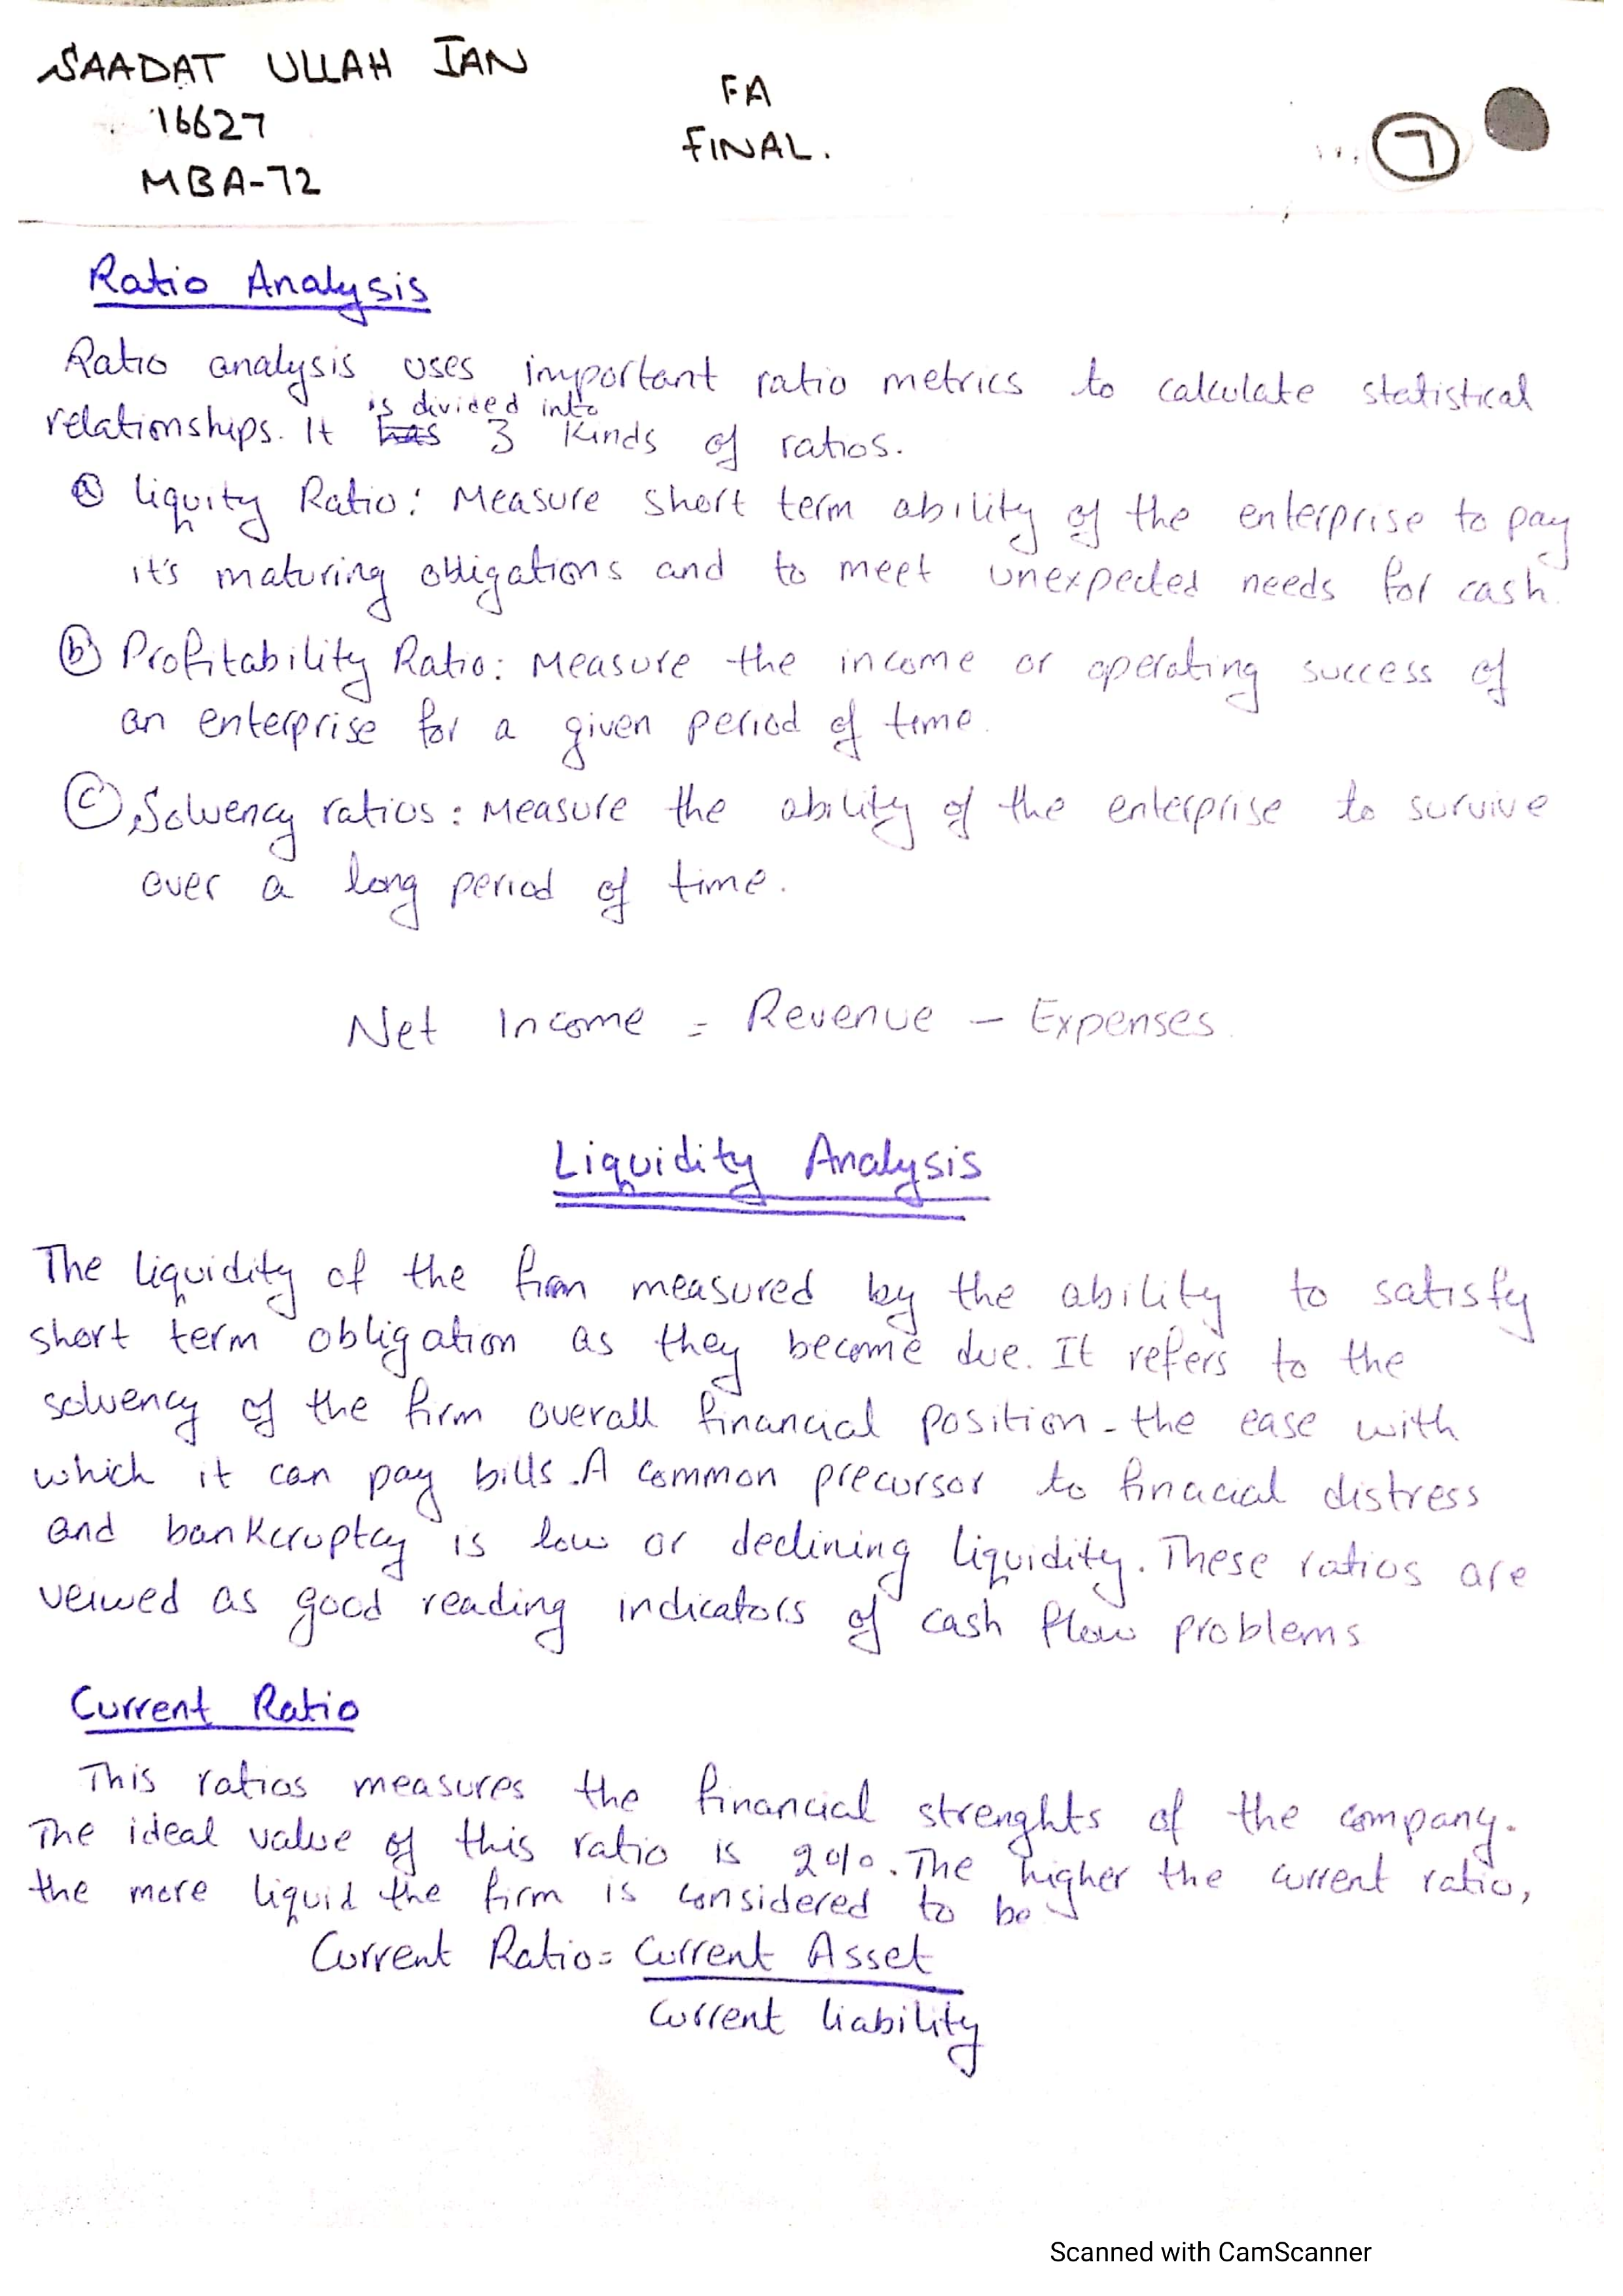 SAADAT ULLAH JAN
16627
MBA-72
FA
FINAL.
7
Ratio Analysis
Ratio analysis uses important ratio metrics to calculate statistical
is divided into
relationships. It has 3 kinds of ratios.
(a) liquity Ratio: Measure short term ability of the enterprise to pay
it's maturing obligations and to meet unexpected needs for cash.
(b) Profitability Ratio: Measure the income or operating success of
an enterprise for a given period of time.
(c) Solvency ratios: Measure the ability of the enterprise to survive
over a long period of time.
Net Income = Revenue - Expenses.
Liquidity Analysis
The liquidity of the firm measured by the ability to satisfy
short term obligation as they become due. It refers to the
solvency of the firm overall financial position - the ease with
which it can pay bills. A common precursor to finacial distress
and bankcruptcy is low or declining liquidity. These ratios are
veiwed as good reading indicators of cash flow problems
Current Ratio
This ratios measures the financial strenghts of the company.
The ideal value of this ratio is 20%. The higher the current ratio,
the more liquid the firm is considered to be
Current Ratio = Current Asset
Current liability
Scanned with CamScanner